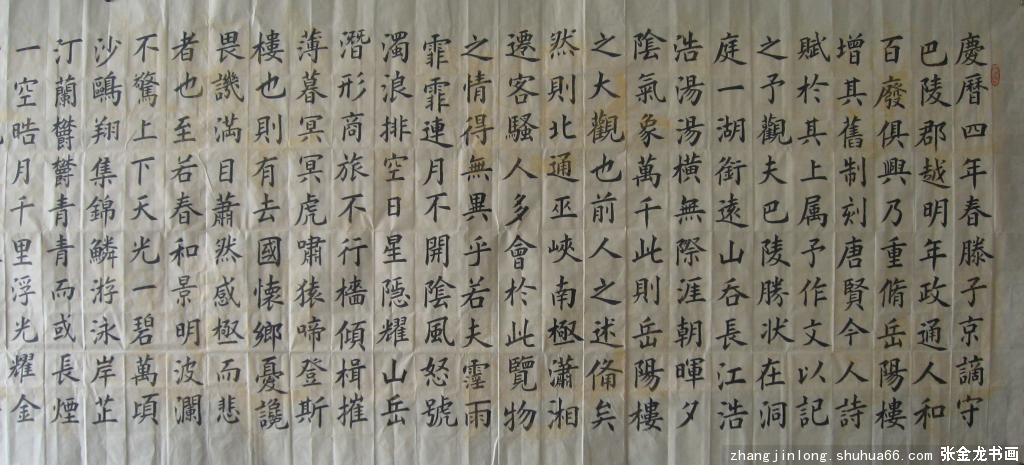 慶曆四年春滕子京謫守
巴陵郡越明年政通人和
百廢俱興乃重脩岳陽樓
增其舊制刻唐賢今人詩
賦於其上属予作文以記
之予觀夫巴陵勝状在洞
庭一湖銜遠山吞長江浩
浩湯湯橫無際涯朝暉夕
陰氣象萬千此則岳陽樓
之大觀也前人之述俻矣
然則北通巫峽南極瀟湘
遷客騷人多會於此覽物
之情得無異乎若夫霪雨
霏霏連月不開陰風怒號
濁浪排空日星隱耀山岳
潛形商旅不行檣傾楫摧
薄暮冥冥虎嘯猿啼登斯
樓也則有去國懷鄉憂讒
畏譏滿目蕭然感極而悲
者也至若春和景明波瀾
不驚上下天光一碧萬頃
沙鷗翔集錦鱗游泳岸芷
汀蘭欝欝青青而或長煙
一空晧月千里浮光耀金
zhangjinlong.shuhua66.com 张金龙书画